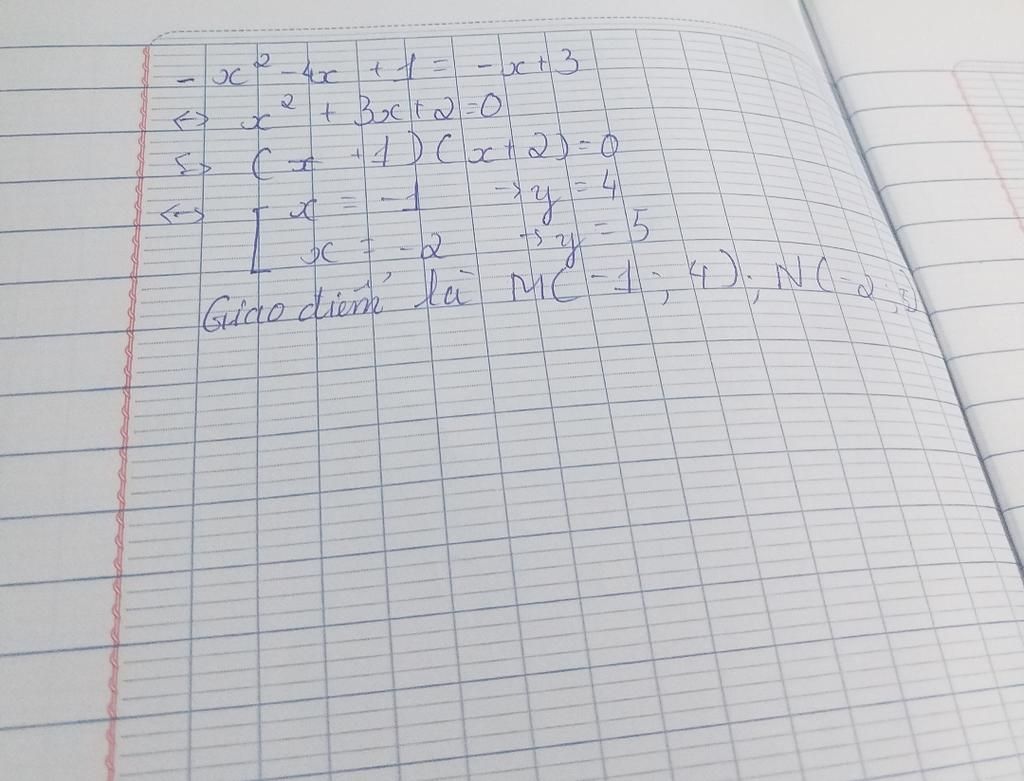 - x² - 4x + 1 = - x + 3
<-> x² + 3x + 2 = 0
<=> (x + 1) (x + 2) = 0
<-> [ x = -1 -> y = 4
x = -2 -> y = 5
Giao điểm là M(-1; 4); N(-2; 5)